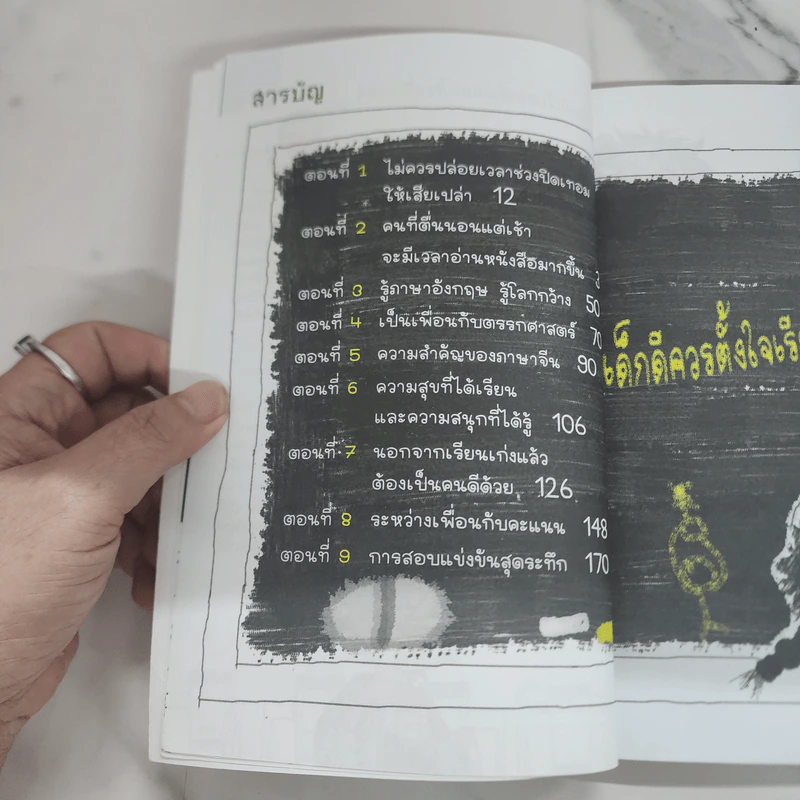 สารบัญ
ตอนที่ 1 ไม่ควรปล่อยเวลาช่วงปิดเทอม
ให้เสียเปล่า 12
ตอนที่ 2 คนที่ตื่นนอนแต่เช้า
จะมีเวลาอ่านหนังสือมากขึ้น 3
ตอนที่ 3 รู้ภาษาอังกฤษ รู้โลกกว้าง 50
ตอนที่ 4 เป็นเพื่อนกับตรรกศาสตร์ 70
ตอนที่ 5 ความสำคัญของภาษาจีน 90
ตอนที่ 6 ความสุขที่ได้เรียน
และความสนุกที่ได้รู้ 106
ตอนที่ 7 นอกจากเรียนเก่งแล้ว
ต้องเป็นคนดีด้วย 126
ตอนที่ 8 ระหว่างเพื่อนกับคะแนน 148
ตอนที่ 9 การสอบแข่งขันสุดระทึก 170
เด็กดีควรตั้งใจเรี